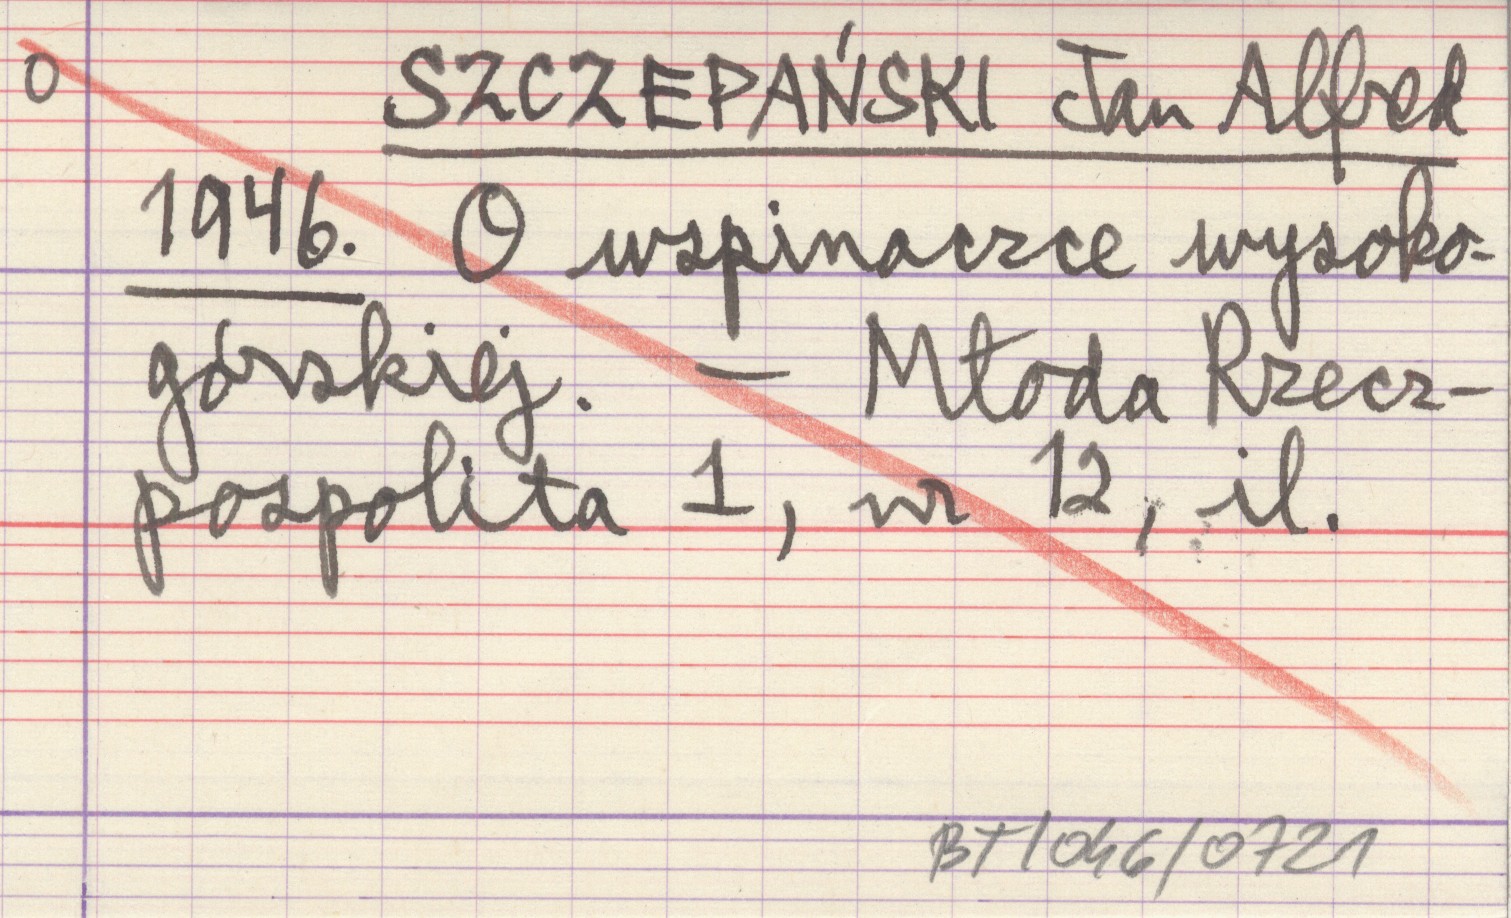 0 SZCZEPAŃSKI Jan Alfred
1946. O wspinaczce wysoko-
górskiej. – Młoda Rzecz-
pospolita 1, nr 12, il.
BT/046/0721